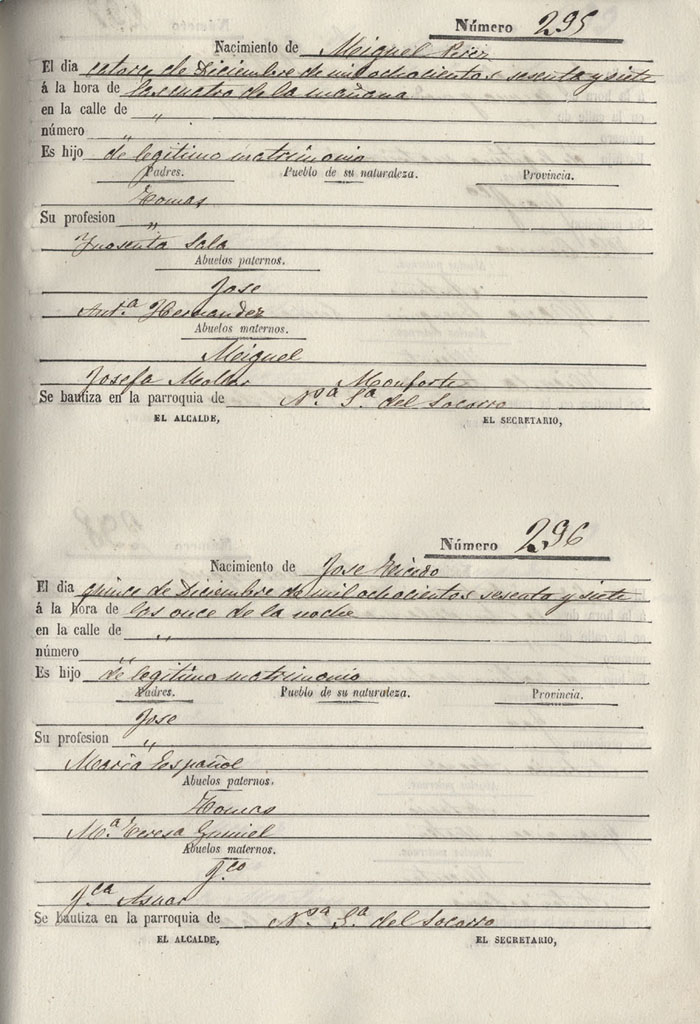 Número 295
Nacimiento de Meiguel Perez
El dia catorce de Diciembre de mil ochocientos sesenta y siete
á la hora de las cuatro de la mañana
en la calle de "
número "
Es hijo de legitimo matrimonio
Padres. Pueblo de su naturaleza. Provincia.
Tomas
Su profesion "
Ynosenta Sala
Abuelos paternos.
Jose
Ant.ª Hernandez
Abuelos maternos.
Meiguel
Josefa Monforte
Se bautiza en la parroquia de Nª Sª del Socorro
EL ALCALDE, EL SECRETARIO,
Número 296
Nacimiento de Jose
El dia quince de Diciembre de mil ochocientos sesenta y siete
á la hora de las once de la noche
en la calle de "
número "
Es hijo de legitimo matrimonio
Padres. Pueblo de su naturaleza. Provincia.
Jose
Su profesion "
Maria Español
Abuelos paternos.
Tomas
Mª Teresa Gumiel
Abuelos maternos.
Fco
Fca Asnar
Se bautiza en la parroquia de Nª Sª del Socorro
EL ALCALDE, EL SECRETARIO,